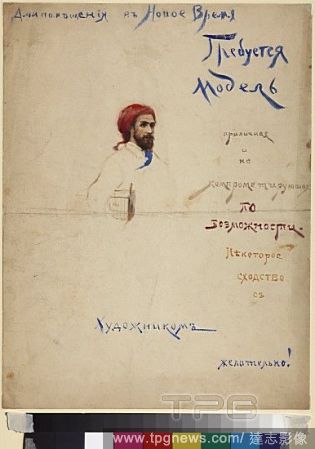 въ Новое Время
Требуется
Модель
приличная
и
не
компрометирующая
по
возможности.
Нѣкоторое
сходство
съ
Художникомъ
желательно!
TPG
www.tpgnews.com/ 達志影像